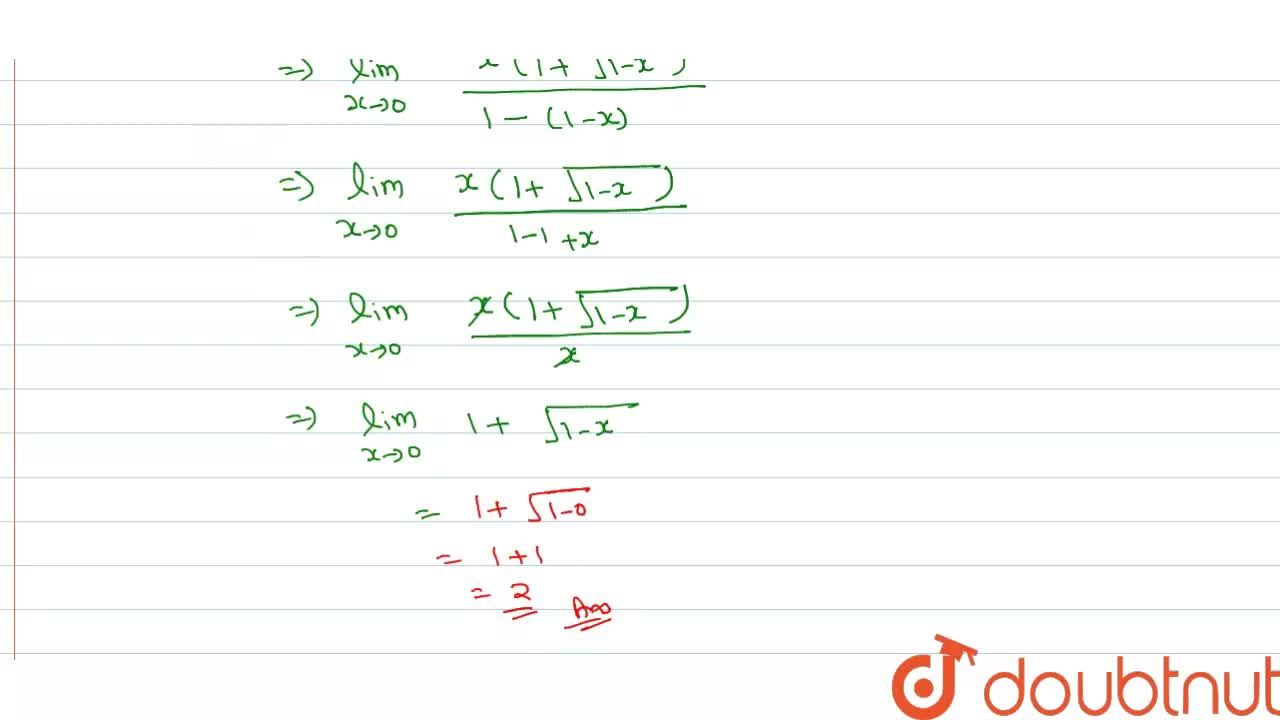 ⇒ lim x→0 x(1+√1-x) / 1-(1-x)
⇒ lim x→0 x(1+√1-x) / 1-1+x
⇒ lim x→0 x(1+√1-x) / x
⇒ lim x→0 1+√1-x
= 1+√1-0
= 1+1
= 2 Ans
doubtnut